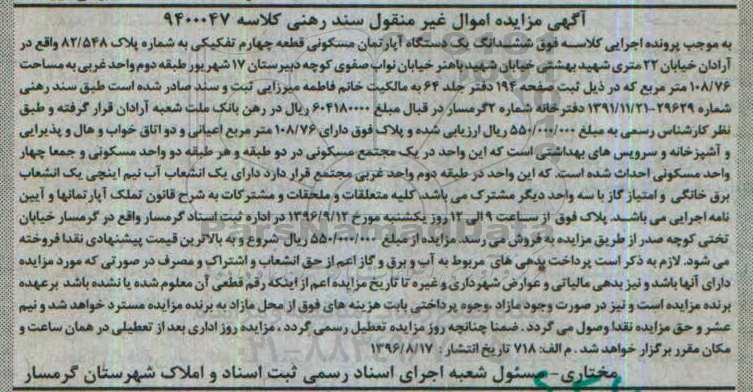 آگهی مزایده اموال غیر منقول سند رهنی کلاسه ۹۴۰۰۰۴۷
به موجب پرونده اجرایی کلاسه فوق ششدانگ یک دستگاه آپارتمان مسکونی قطعه چهارم تفکیکی به شماره پلاک ۸۲/۵۴۸ واقع در
آرادان خیابان ۲۲ متری شهید بهشتی خیابان شهید باهنر خیابان نواب صفوی کوچه دبیرستان ۱۷ شهریور طبقه دوم واحد غربی به مساحت
۱۰۸/۷۶ متر مربع که در ذیل ثبت صفحه ۱۹۴ دفتر جلد ۶۴ به مالکیت خانم فاطمه میرزایی ثبت و سند صادر شده است طبق سند رهنی
شماره ۲۹۶۲۹-۱۳۹۱/۱۱/۲۱ دفترخانه شماره ۲گرمسار در قبال مبلغ ۶۰۴۱۸۰۰۰۰ ریال در رهن بانک ملت شعبه آرادان قرار گرفته و طبق
نظر کارشناس رسمی به مبلغ ۵۵۰/۰۰۰/۰۰۰ ریال ارزیابی شده و پلاک فوق دارای ۱۰۸/۷۶ متر مربع اعیانی و دو اتاق خواب و هال و پذیرایی
و آشپزخانه و سرویس های بهداشتی است که این واحد در یک مجتمع مسکونی در دو طبقه و هر طبقه دو واحد مسکونی و جمعا چهار
واحد مسکونی احداث شده است. که این واحد در طبقه دوم واحد غربی مجتمع قرار دارد دارای یک انشعاب آب نیم اینچی یک انشعاب
برق خانگی و امتیاز گاز با سه واحد دیگر مشترک می باشد. کلیه متعلقات و ملحقات و مشترکات به شرح قانون تملک آپارتمانها و آیین
نامه اجرایی می باشد. پلاک فوق از ساعت ۹ الی ۱۲ روز یکشنبه مورخ ۱۳۹۶/۹/۱۲ در اداره ثبت اسناد گرمسار واقع در گرمسار خیابان
تختی کوچه صدر از طریق مزایده به فروش می رسد. مزایده از مبلغ ۵۵۰/۰۰۰/۰۰۰ ریال شروع و به بالاترین قیمت پیشنهادی نقدا فروخته
می شود. لازم به ذکر است پرداخت بدهی های مربوط به آب و برق و گاز اعم از حق انشعاب و اشتراک و مصرف در صورتی که مورد مزایده
دارای آنها باشد و نیز بدهی مالیاتی و عوارض شهرداری و غیره تا تاریخ مزایده اعم از اینکه رقم قطعی آن معلوم شده یا نشده باشد بر عهده
برنده مزایده است و نیز در صورت وجود مازاد وجوه پرداختی بابت هزینه های فوق از محل مازاد به برنده مزایده مسترد خواهد شد و نیم
عشر و حق مزایده نقدا وصول می گردد. ضمنا چنانچه روز مزایده تعطیل رسمی گردد، مزایده روز اداری بعد از تعطیلی در همان ساعت و
مکان مقرر برگزار خواهد شد. م الف: ۷۱۸ تاریخ انتشار: ۱۳۹۶/۸/۱۷
مختاری- مسئول شعبه اجرای اسناد رسمی ثبت اسناد و املاک شهرستان گرمسار